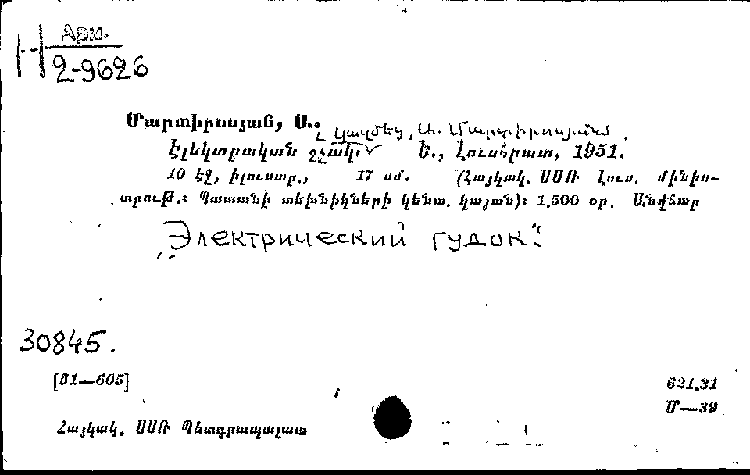 Арм.
Н 2-9626
Մարտիրոսյան, Ս.,
/ կազմեց, Ս. Մարտիրոսյանս
Էլեկտրական շչակ. Ե., Լուսհրատ, 1951.
10 էջ, իլուստր., 17 սմ. (Հայկակ. ՍՍՌ Լուս. մինիս-
տրութ.։ Պատանի տեխնիկների կենտ. կայան)։ 1,500 օր. Անվճար
„Электрический гудок“
30845.
[51—605]
621.31
Մ—39
Հայկակ. ՍՍՌ Պետգրապալատ